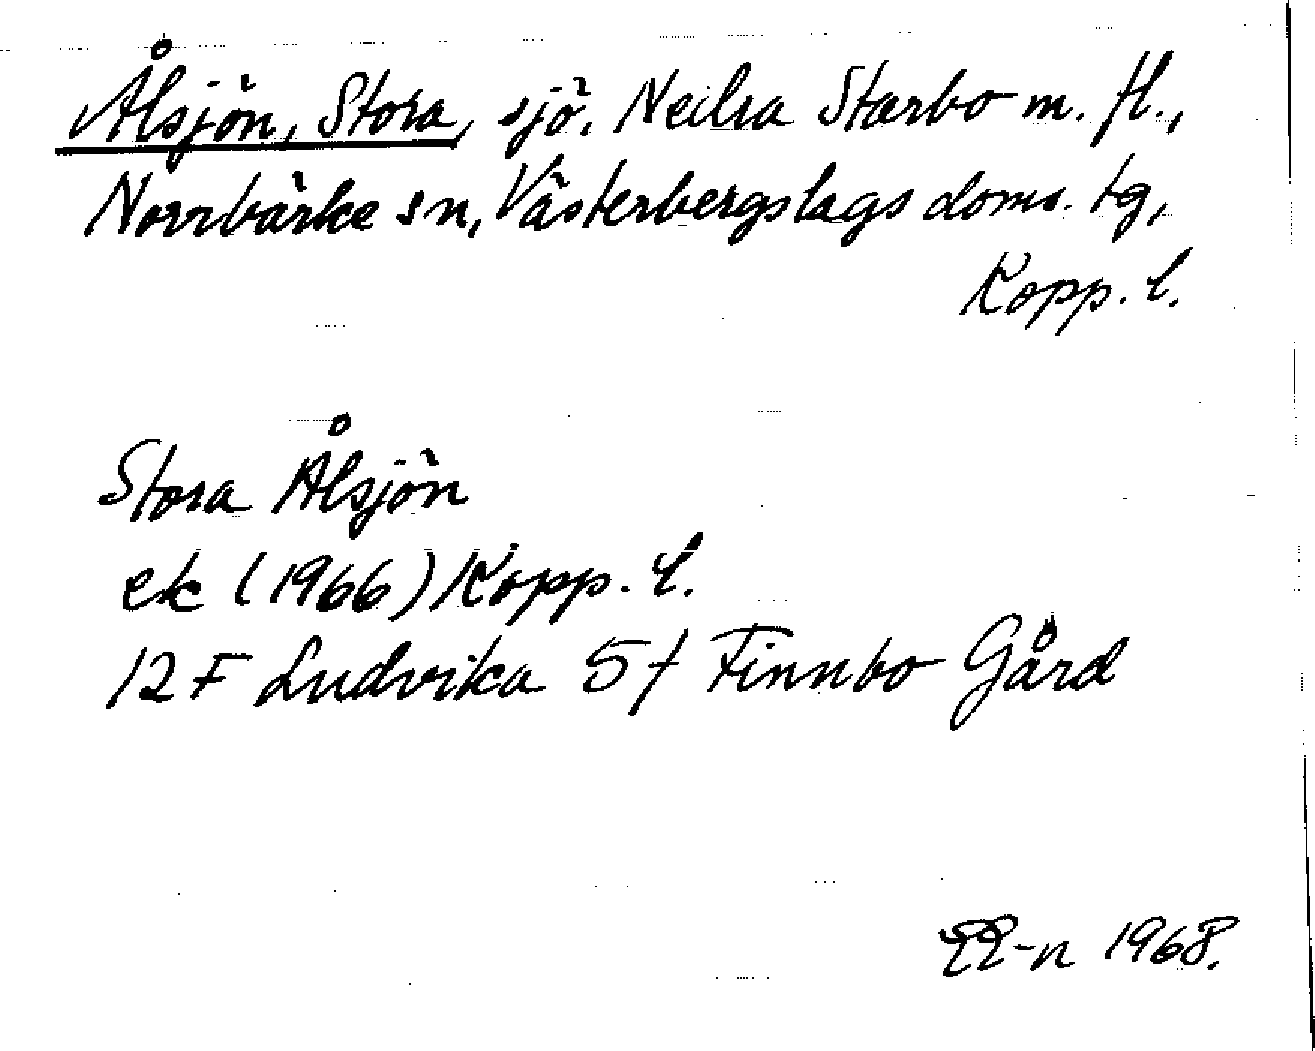 Ålsjön, Stora, sjö. Nedra Starbo m. fl.,
Norrbärke sn, Västerbergslags doms. tg,
Kopp. l.
Stora Ålsjön
ek (1966) Kopp. l.
12 F Ludvika 5f Finnbo Gård
1968.